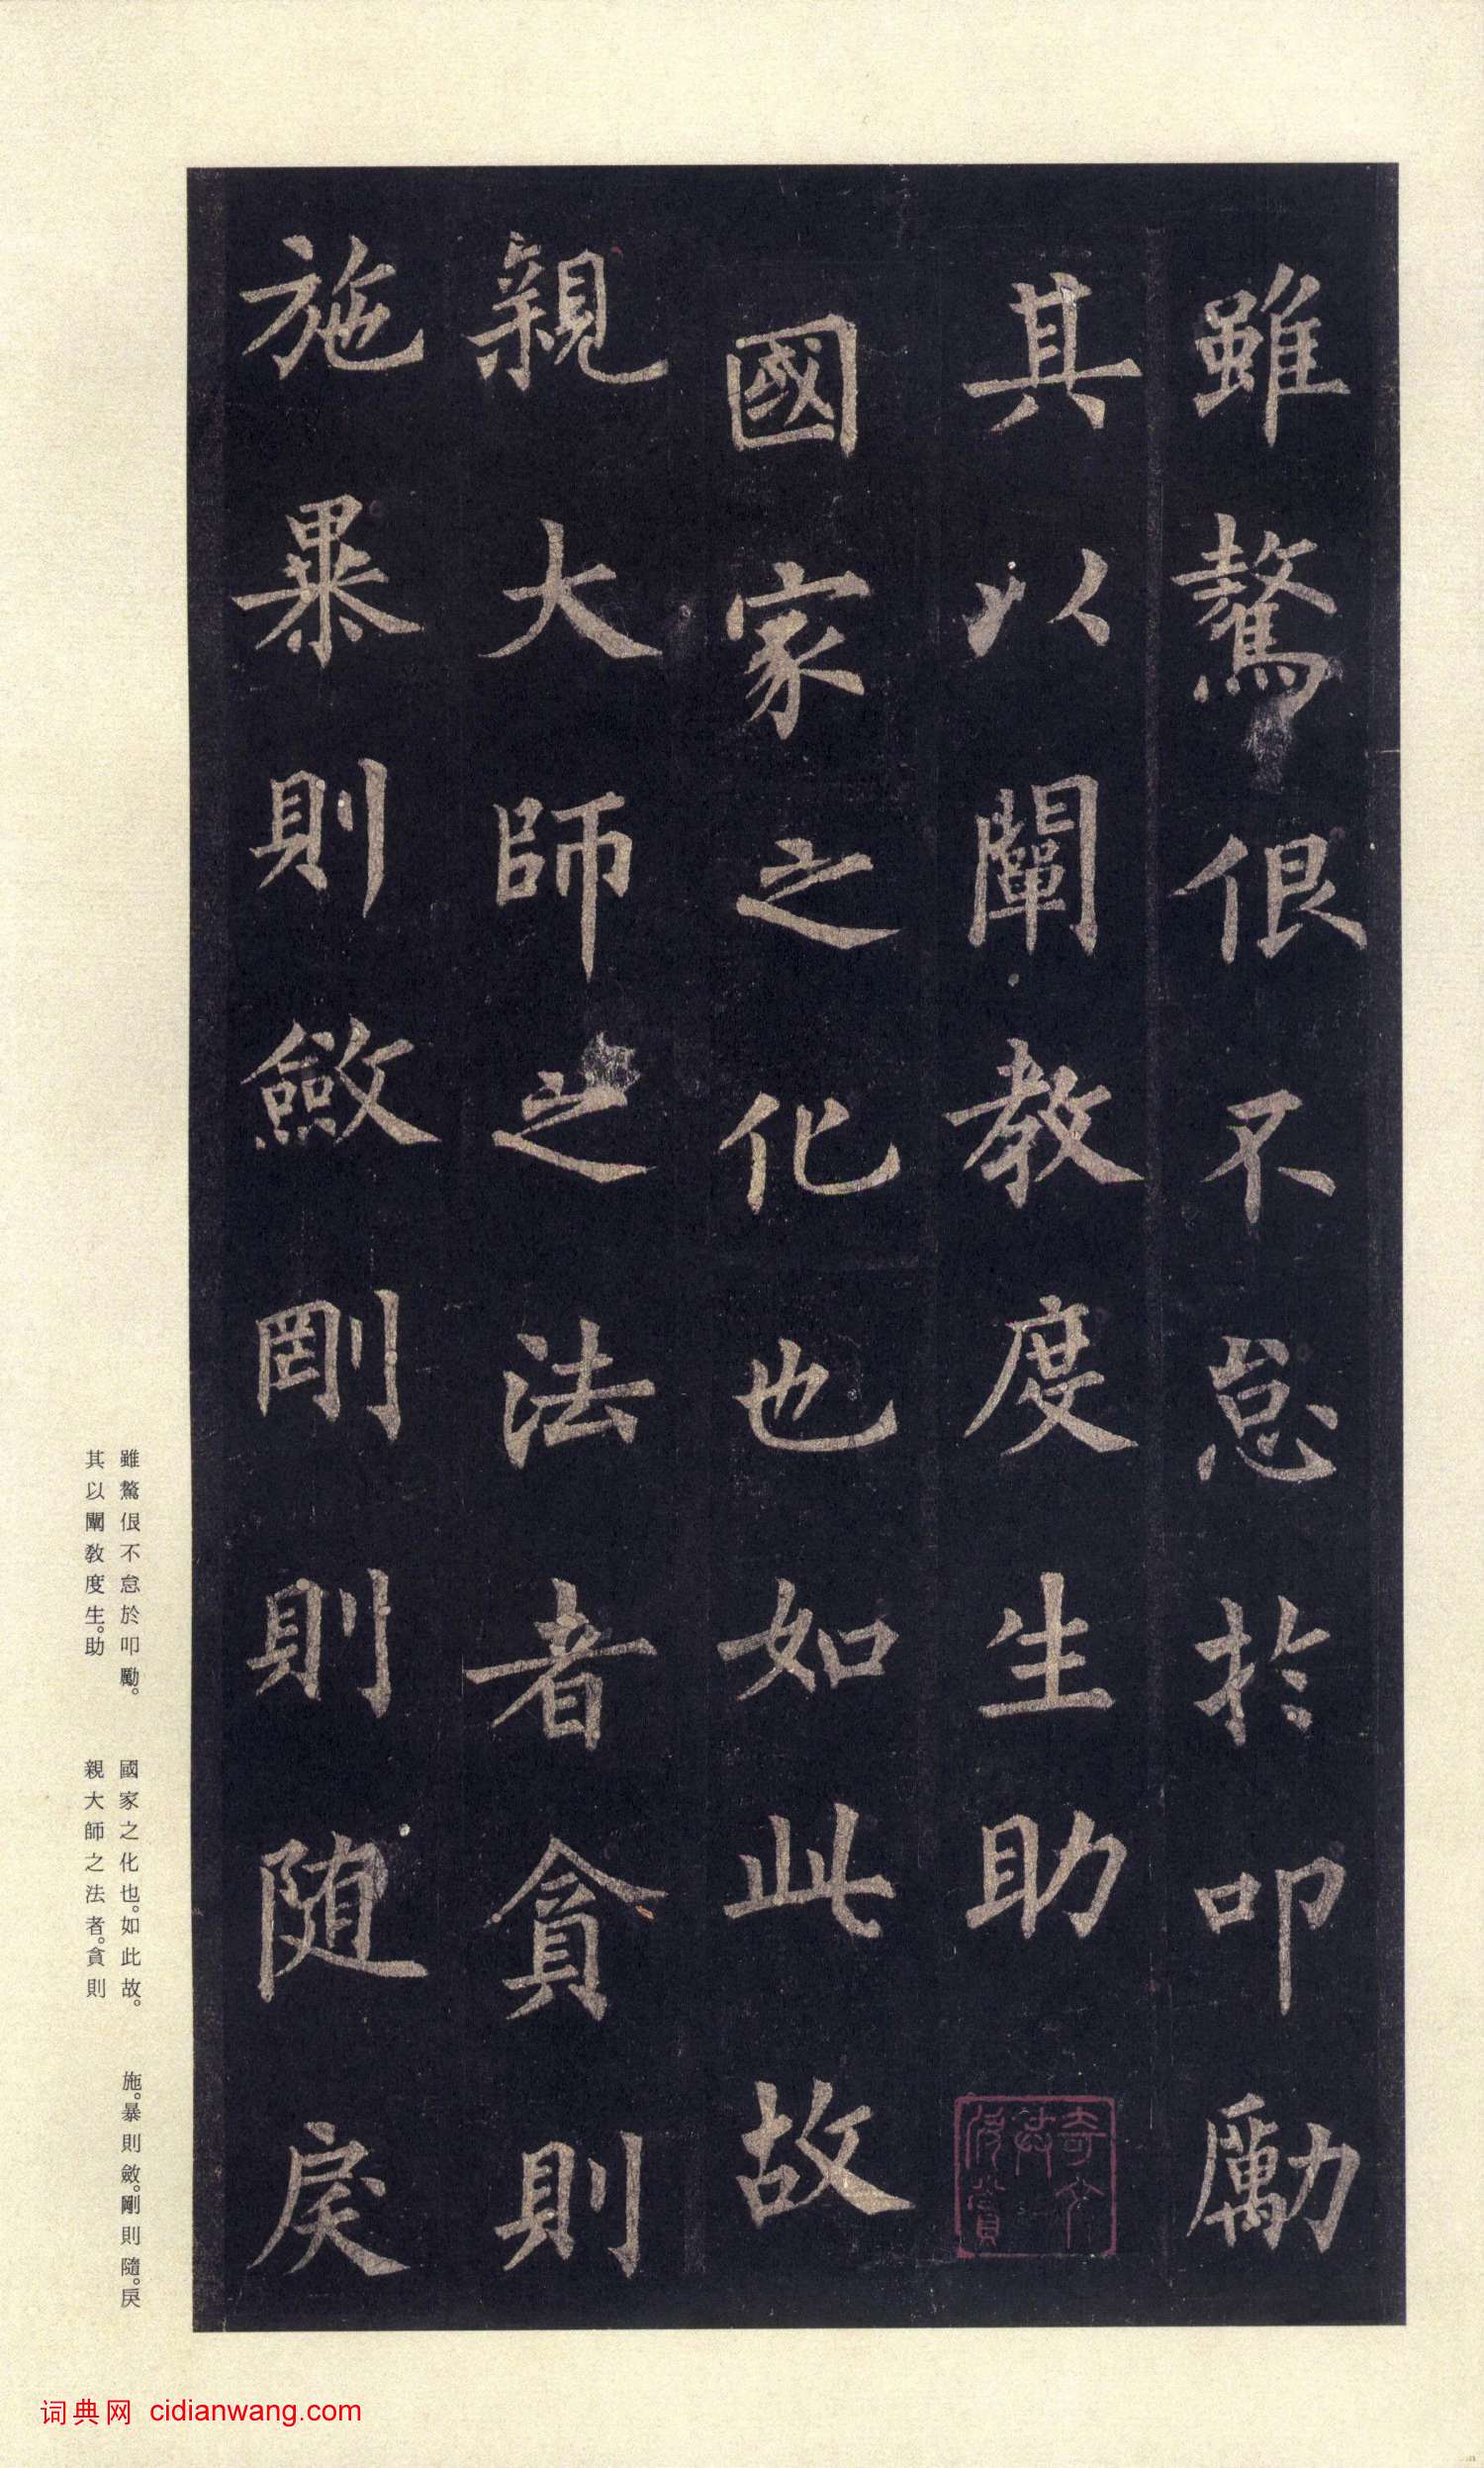 雖驁佷不怠於叩勵
其以闡教度生助
國家之化也如此故
親大師之法者貪則
施暴則斂剛則隨戾
雖驁佷不怠於叩勵。
其以闡教度生。助
國家之化也。如此故。
親大師之法者。貪則
施。暴則斂。剛則隨。戾
词典网 cidianwang.com